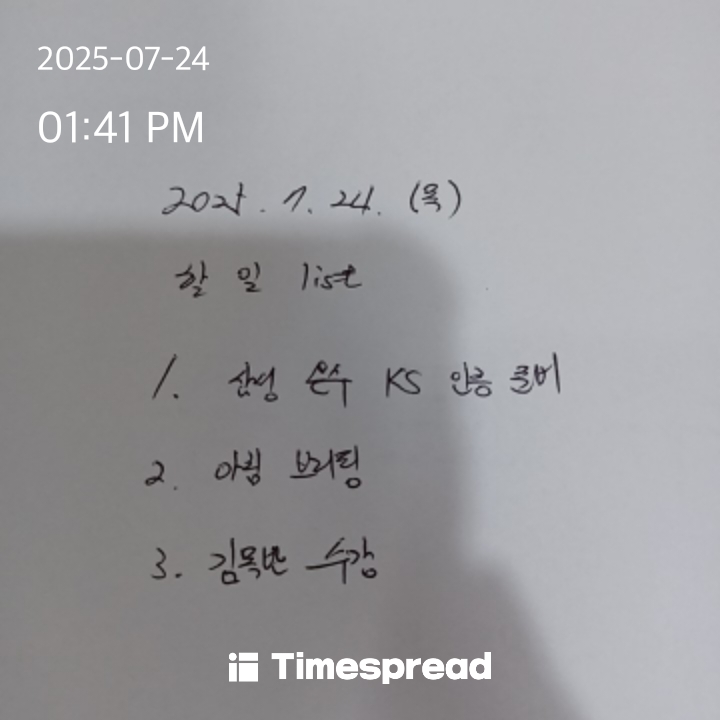 2025-07-24
01:41 PM
2025. 7. 24. (목)
할 일 list
1. 온수 KS 인증 준비
2. 아침 브리핑
3. 김목반 수강
Timespread